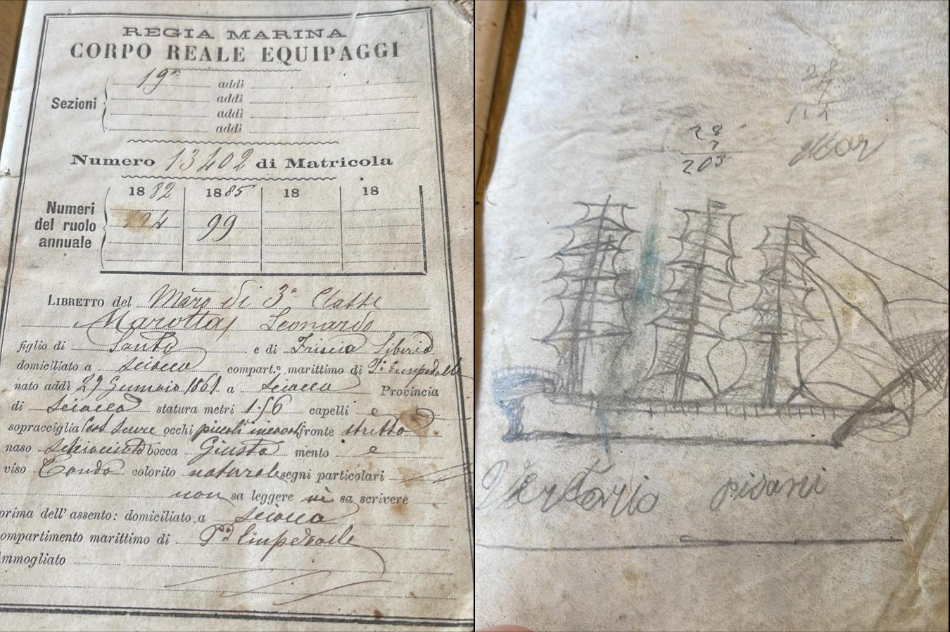 REGIA MARINA
CORPO REALE EQUIPAGGI
Sezioni
19ª addì
addì
addì
addì
Numero 13402 di Matricola
Numeri del ruolo annuale
1882 1885 18 18
99
LIBRETTO del Marº di 3ª Classe
Marotta Leonardo
figlio di Santo e di Friscia Liberia
domiciliato a Sciacca compart.º marittimo di Pº Empedocle
nato addì 29 Gennaio 1861 a Sciacca Provincia
di Sciacca statura metri 1.56 capelli e
sopracciglia occhi piccoli fronte stretta
naso schiacciato bocca Giusta mento e
viso Tondo colorito naturale segni particolari
non sa leggere nè sa scrivere
prima dell'assento: domiciliato a Sciacca
compartimento marittimo di Pto Empedocle
Ammogliato
28
7
28
7
203
Vertorio pisani